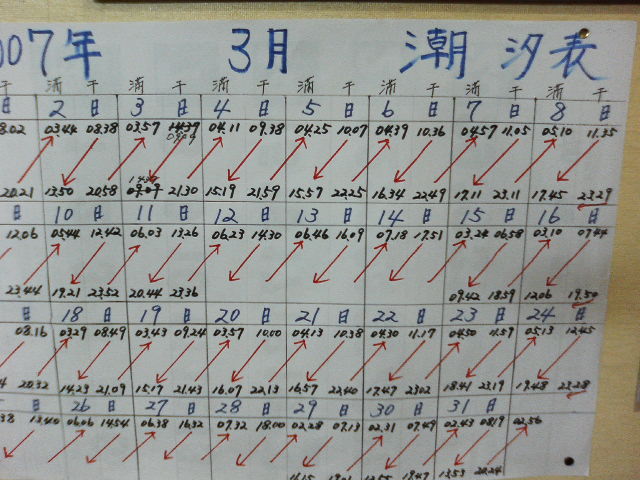 007年 3月 潮汐表
干 満 干 満 干 満 干 満 干 満 干 満 干 満 干
日 2日 3日 4日 5日 6日 7日 8日
8.02 03.44 08.38 03.57 04.11 09.38 04.25 10.07 04.39 10.36 04.57 11.05 05.10 11.35
20.21 13.50 20.58 09.09 21.30 15.19 21.59 15.57 22.25 16.34 22.49 17.11 23.11 17.45 23.29
日 10日 11日 12日 13日 14日 15日 16日
12.06 05.44 12.42 06.03 13.26 06.23 14.30 06.46 16.09 07.18 17.51 03.24 06.58 03.10 07.44
23.44 19.21 23.52 20.44 23.36 09.42 18.59 12.06 19.50
日 18日 19日 20日 21日 22日 23日 24日
08.16 03.29 08.49 03.43 09.24 03.57 10.00 04.13 10.38 04.30 11.17 04.50 11.59 05.13 12.45
20.32 14.23 21.09 15.17 21.43 16.07 22.13 16.57 22.40 17.47 23.02 18.41 23.19 19.48 23.28
日 26日 27日 28日 29日 30日 31日
13.40 06.06 14.54 06.38 16.32 07.32 18.00 02.28 07.13 02.31 07.49 02.43 08.19 02.56
13.53 20.24